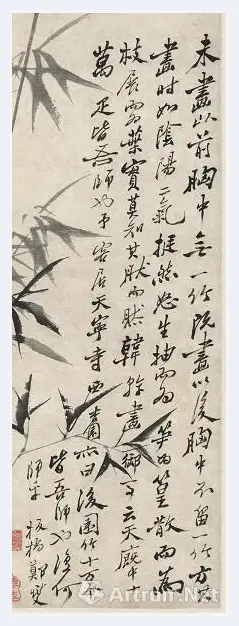 未畫以前胸中無一竹既畫以後胸中不留一竹方其
畫時如陰陽二氣挺然怒生抽而為笋為篁散而為
枝展而為葉實莫知其然而然韓幹畫御馬云天廄中十
萬疋皆吾師也予客居天寧寺西杏園亦曰後園竹十万个
皆吾師也復何
師乎
板橋鄭燮
Artron.Net